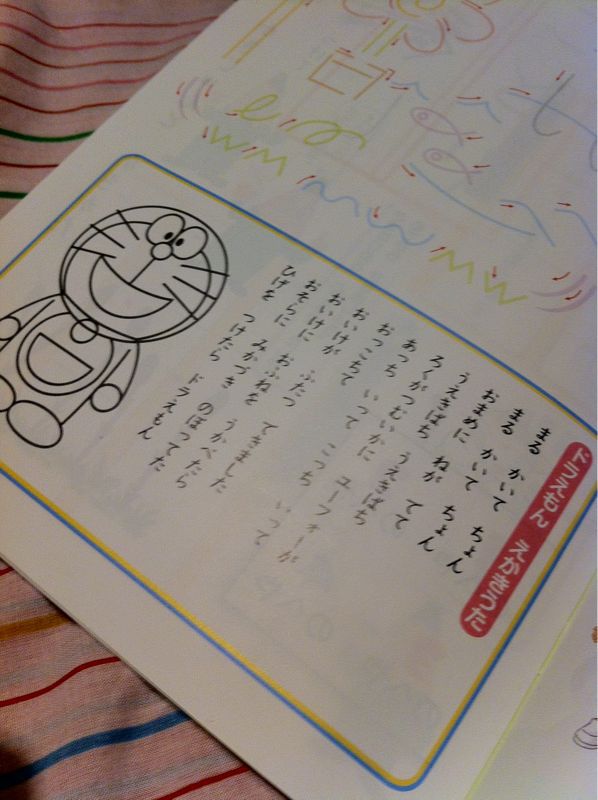 ドラえもん えかきうた
まる かいて ちょん
まる かいて ちょん
おまめに ねが でて
うえきばち うえきばち
ろくがつむいかに ユーフォーが
あっち いって こっち いって
おっこちて
おいけが ふたつ できました
おいけに おふねを うかべたら
おそらに みかづき のぼってた
ひげを つけたら ドラえもん